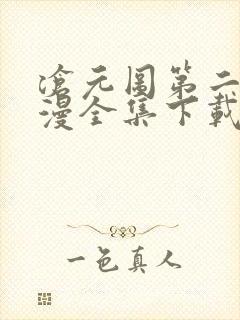 滄元圖第二
漫全集下載
一色真人